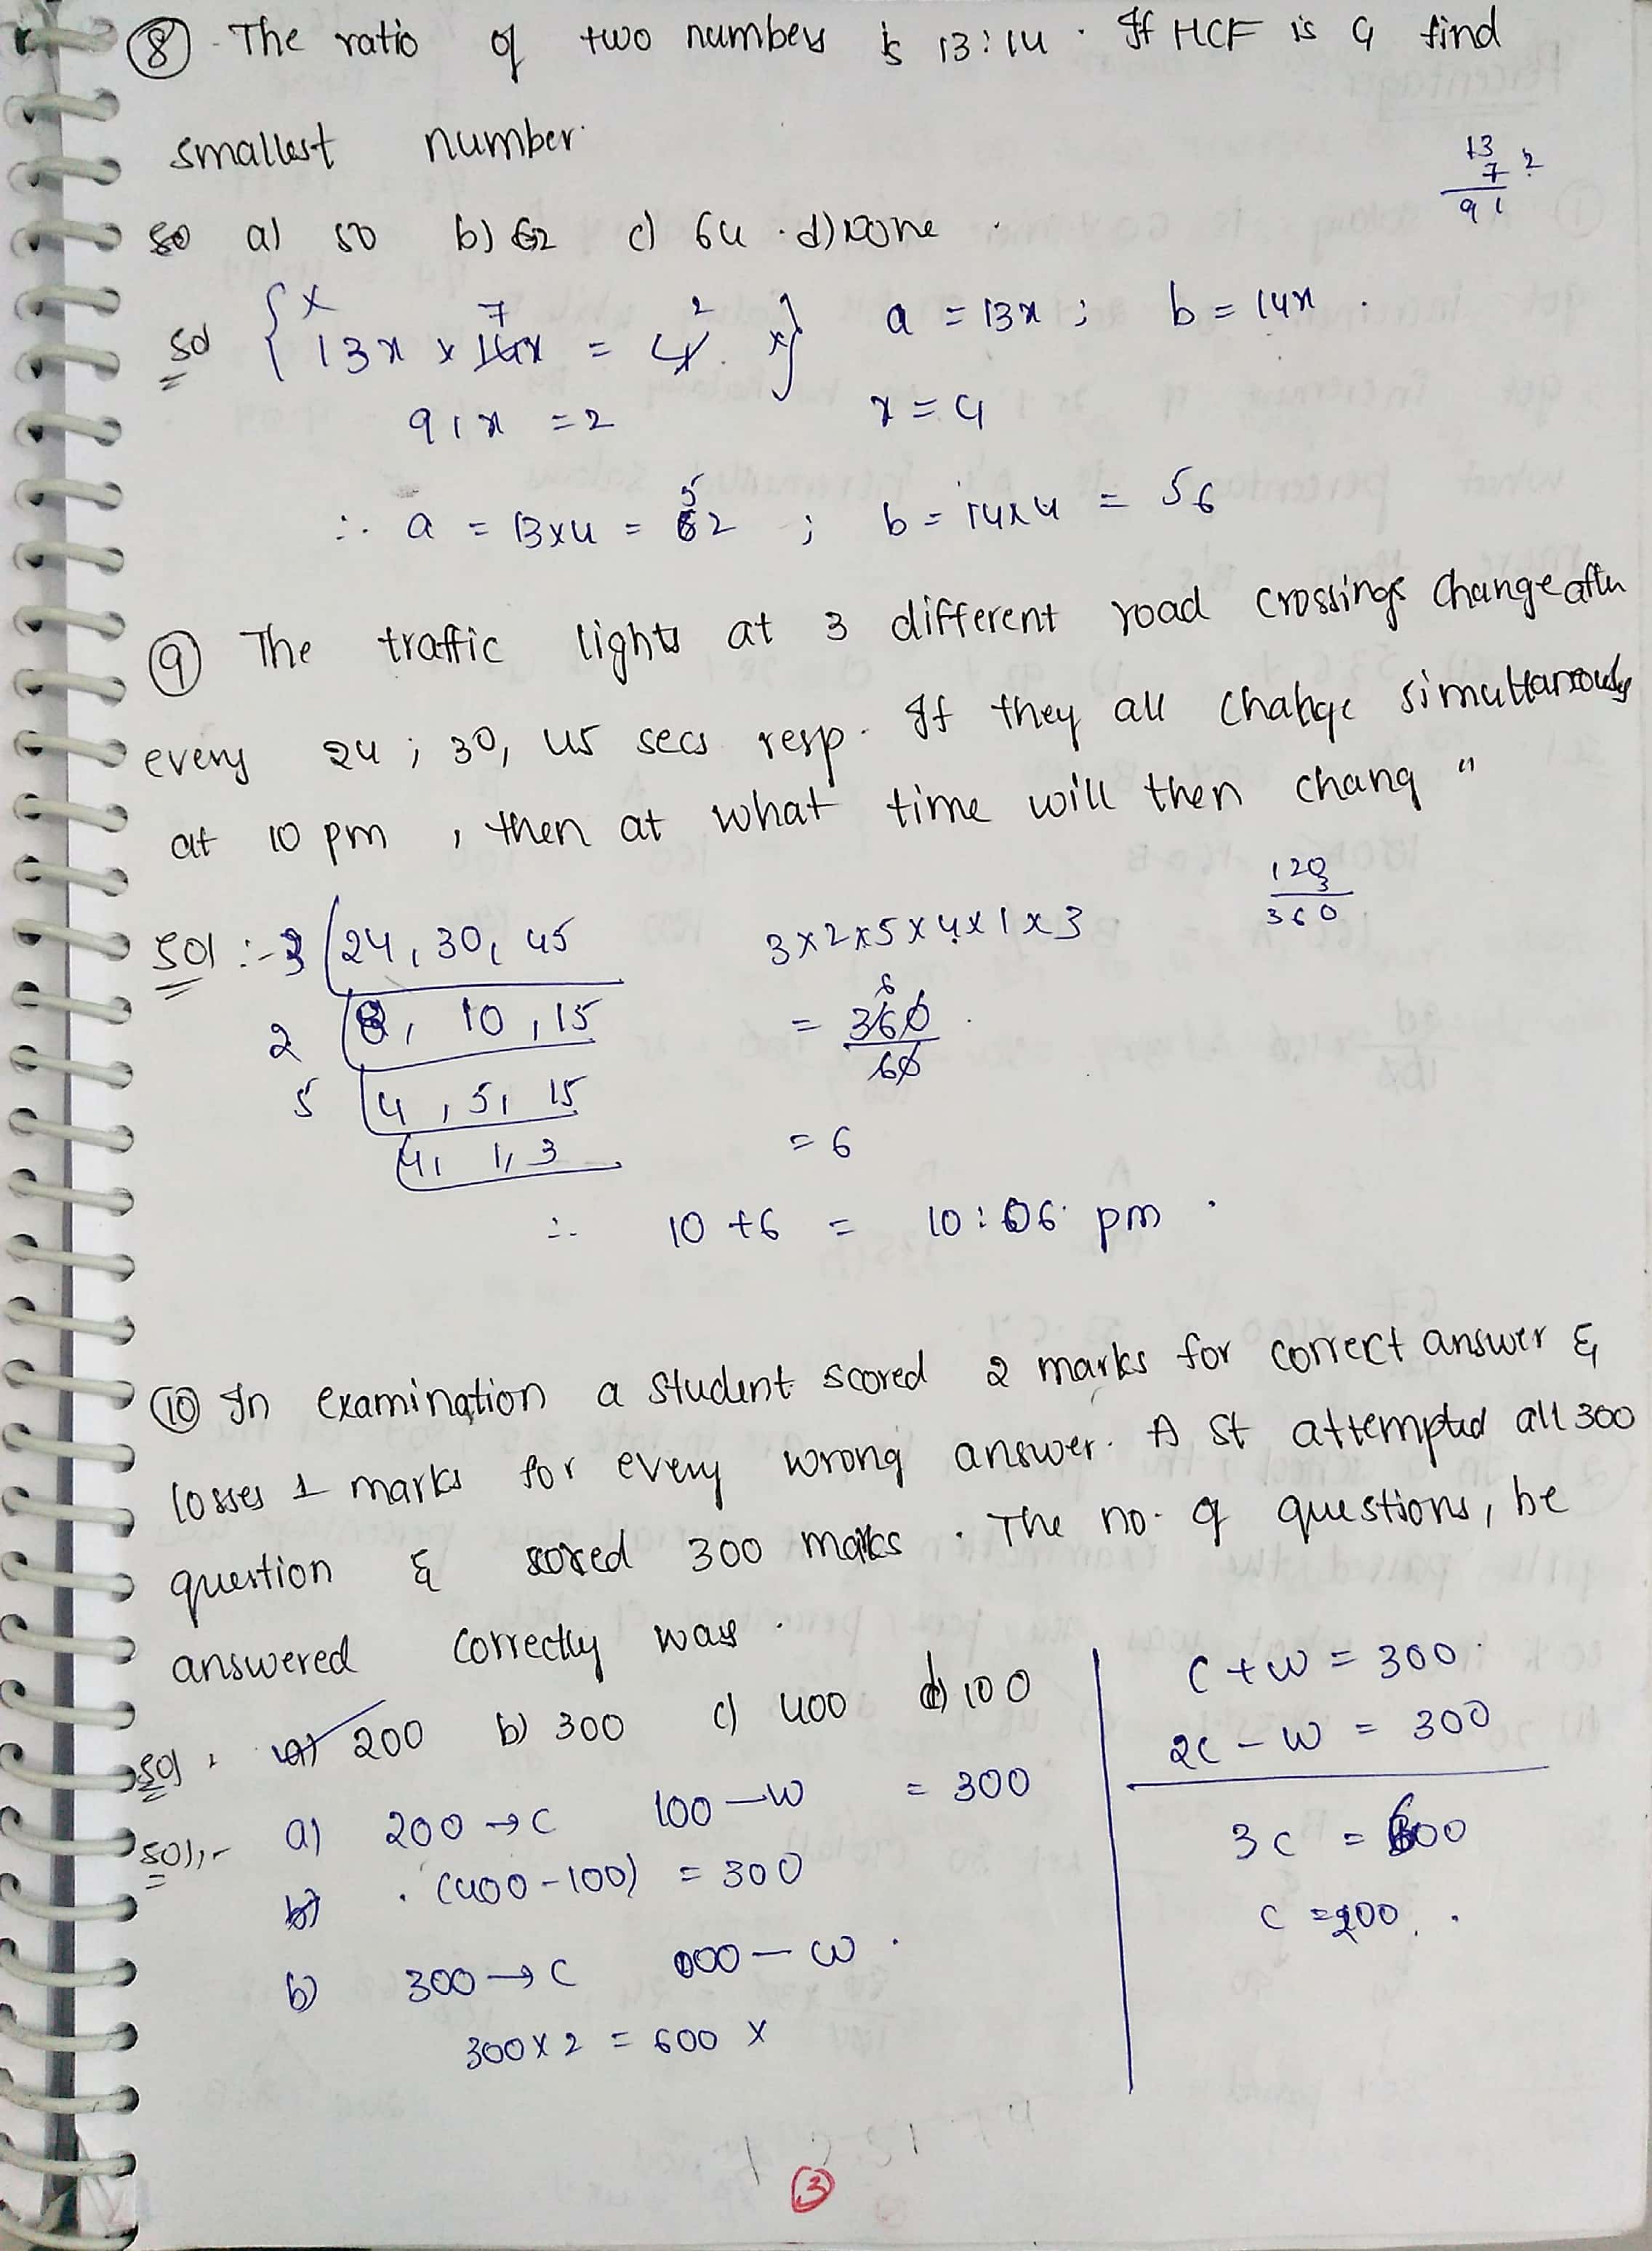 ⑧ The ratio of two numbers is 13:14. If HCF is 4 find
smallest number.
13
7 2
91
so a) 50 b) 62 c) 64 d) None.
Sol { 13x × 14x = 4 } a = 13x ; b = 14x.
7 2
91x = 2 x = 4
∴ a = 13x4 = 52 ; b = 14x4 = 56
⑨ The traffic lights at 3 different road crossings change after
every 24, 30, 45 secs resp. If they all change simultaneously
at 10 pm, then at what time will then chang "
120
3
360
Sol :- 3 24, 30, 45 3x2x5x4x1x3
2 8, 10, 15 = 360
60
6
5 4, 5, 15
4, 1, 3 = 6
∴ 10 + 6 = 10:06 pm.
⑩ In examination a student scored 2 marks for correct answer &
losses 1 marks for every wrong answer. A st attempted all 300
question & scored 300 marks. The no. of questions, be
answered correctly was.
Sol. a) 200 b) 300 c) 400 d) 100
Sol:- a) 200 → C 100 — W = 300
b) . (400-100) = 300
b) 300 → C 000 — W.
300 x 2 = 600 x
C + W = 300.
2C - W = 300
3C = 600
C = 200.
3